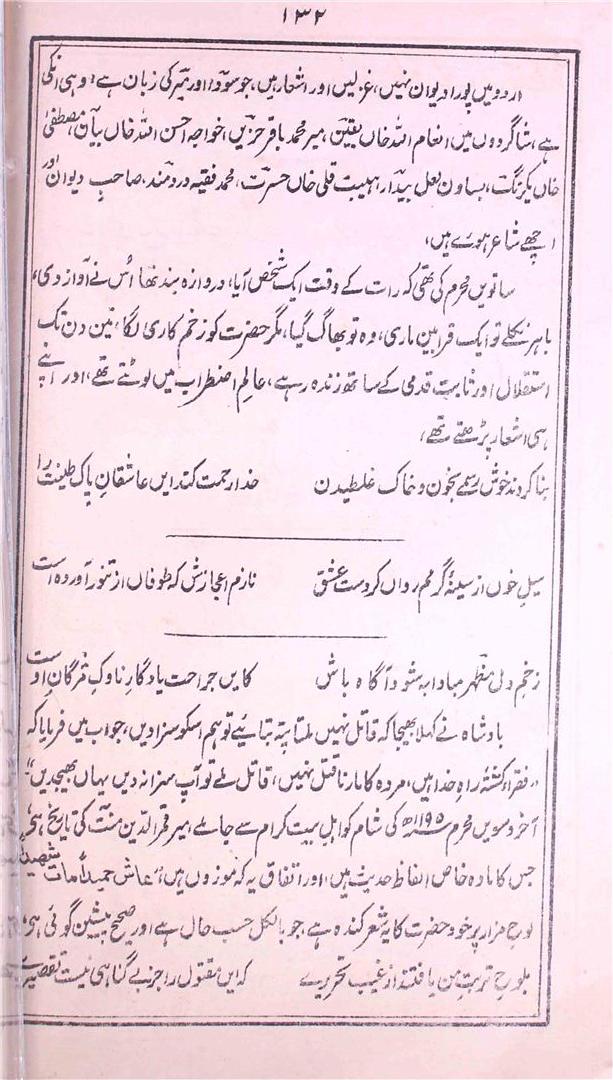 ۱۳۲
اردو میں پورا دیوان نہیں، غزلیں اور اشعار ہیں، جو سودا اور میر کی زبان ہے، وہی انکی
ہے، شاگردوں میں انعام اللہ خاں یقین، میر محمد باقر حزیں، خواجہ احسن اللہ خاں بیان، مصطفیٰ
خاں یکرنگ، بساون لعل بیدار، ہیبت قلی خاں حسرت، محمد فقیہ دردمند، صاحب دیوان اور
اچھے شاعر ہوئے ہیں،
ساتویں محرم کی تھی کہ رات کے وقت ایک شخص آیا، دروازہ بند تھا اُس نے آواز دی،
باہر نکلے تو ایک قرابین ماری، وہ تو بھاگ گیا، مگر حضرت کو زخم کاری لگا، تین دن تک
استقلال اور ثابت قدمی کے ساتھ زندہ رہے، عالم اضطراب میں لوٹتے تھے، اور اپنے
ہی اشعار پڑھتے تھے،
بنا کردند خوش رسمے بخون و خاک غلطیدن خدا رحمت کند ایں عاشقان پاک طینت را
سیل خوں از سینۂ گرمم رواں کردست عشق نازم اعجازش کہ طوفاں از تنور آوردہ است
زخم دل مظہر مبادا بہ شود آگاہ باش کایں جراحت یادگار ناوک مژگان اوست
بادشاہ نے کہلا بھیجا کہ قاتل نہیں ملتا پتہ بتائیے تو ہم اسکو سزا دیں، جواب میں فرمایا کہ
"فقراء کشتۂ راہ خدا ہیں، مردہ کا مارنا قتل نہیں، قاتل ملے تو آپ سزا نہ دیں یہاں بھیجدیں"
آخر دسویں محرم ۱۱۹۵ھ کی شام کو اہل بیت کرام سے جا ملے، میر قمر الدین منت کی تاریخ ہی،
جس کا مادہ خاص الفاظ حدیث ہیں، اور اتفاق یہ کہ موزوں ہیں، عاش حمیداً مات شھیداً
لوح مزار پر خود حضرت کا یہ شعر کندہ ہے، جو بالکل حسب حال ہے اور صحیح پیشین گوئی ہی،
بلوح تربت من یافتند از غیب تحریرے کہ ایں مقتول را جز بے گناہی نیست تقصیرے